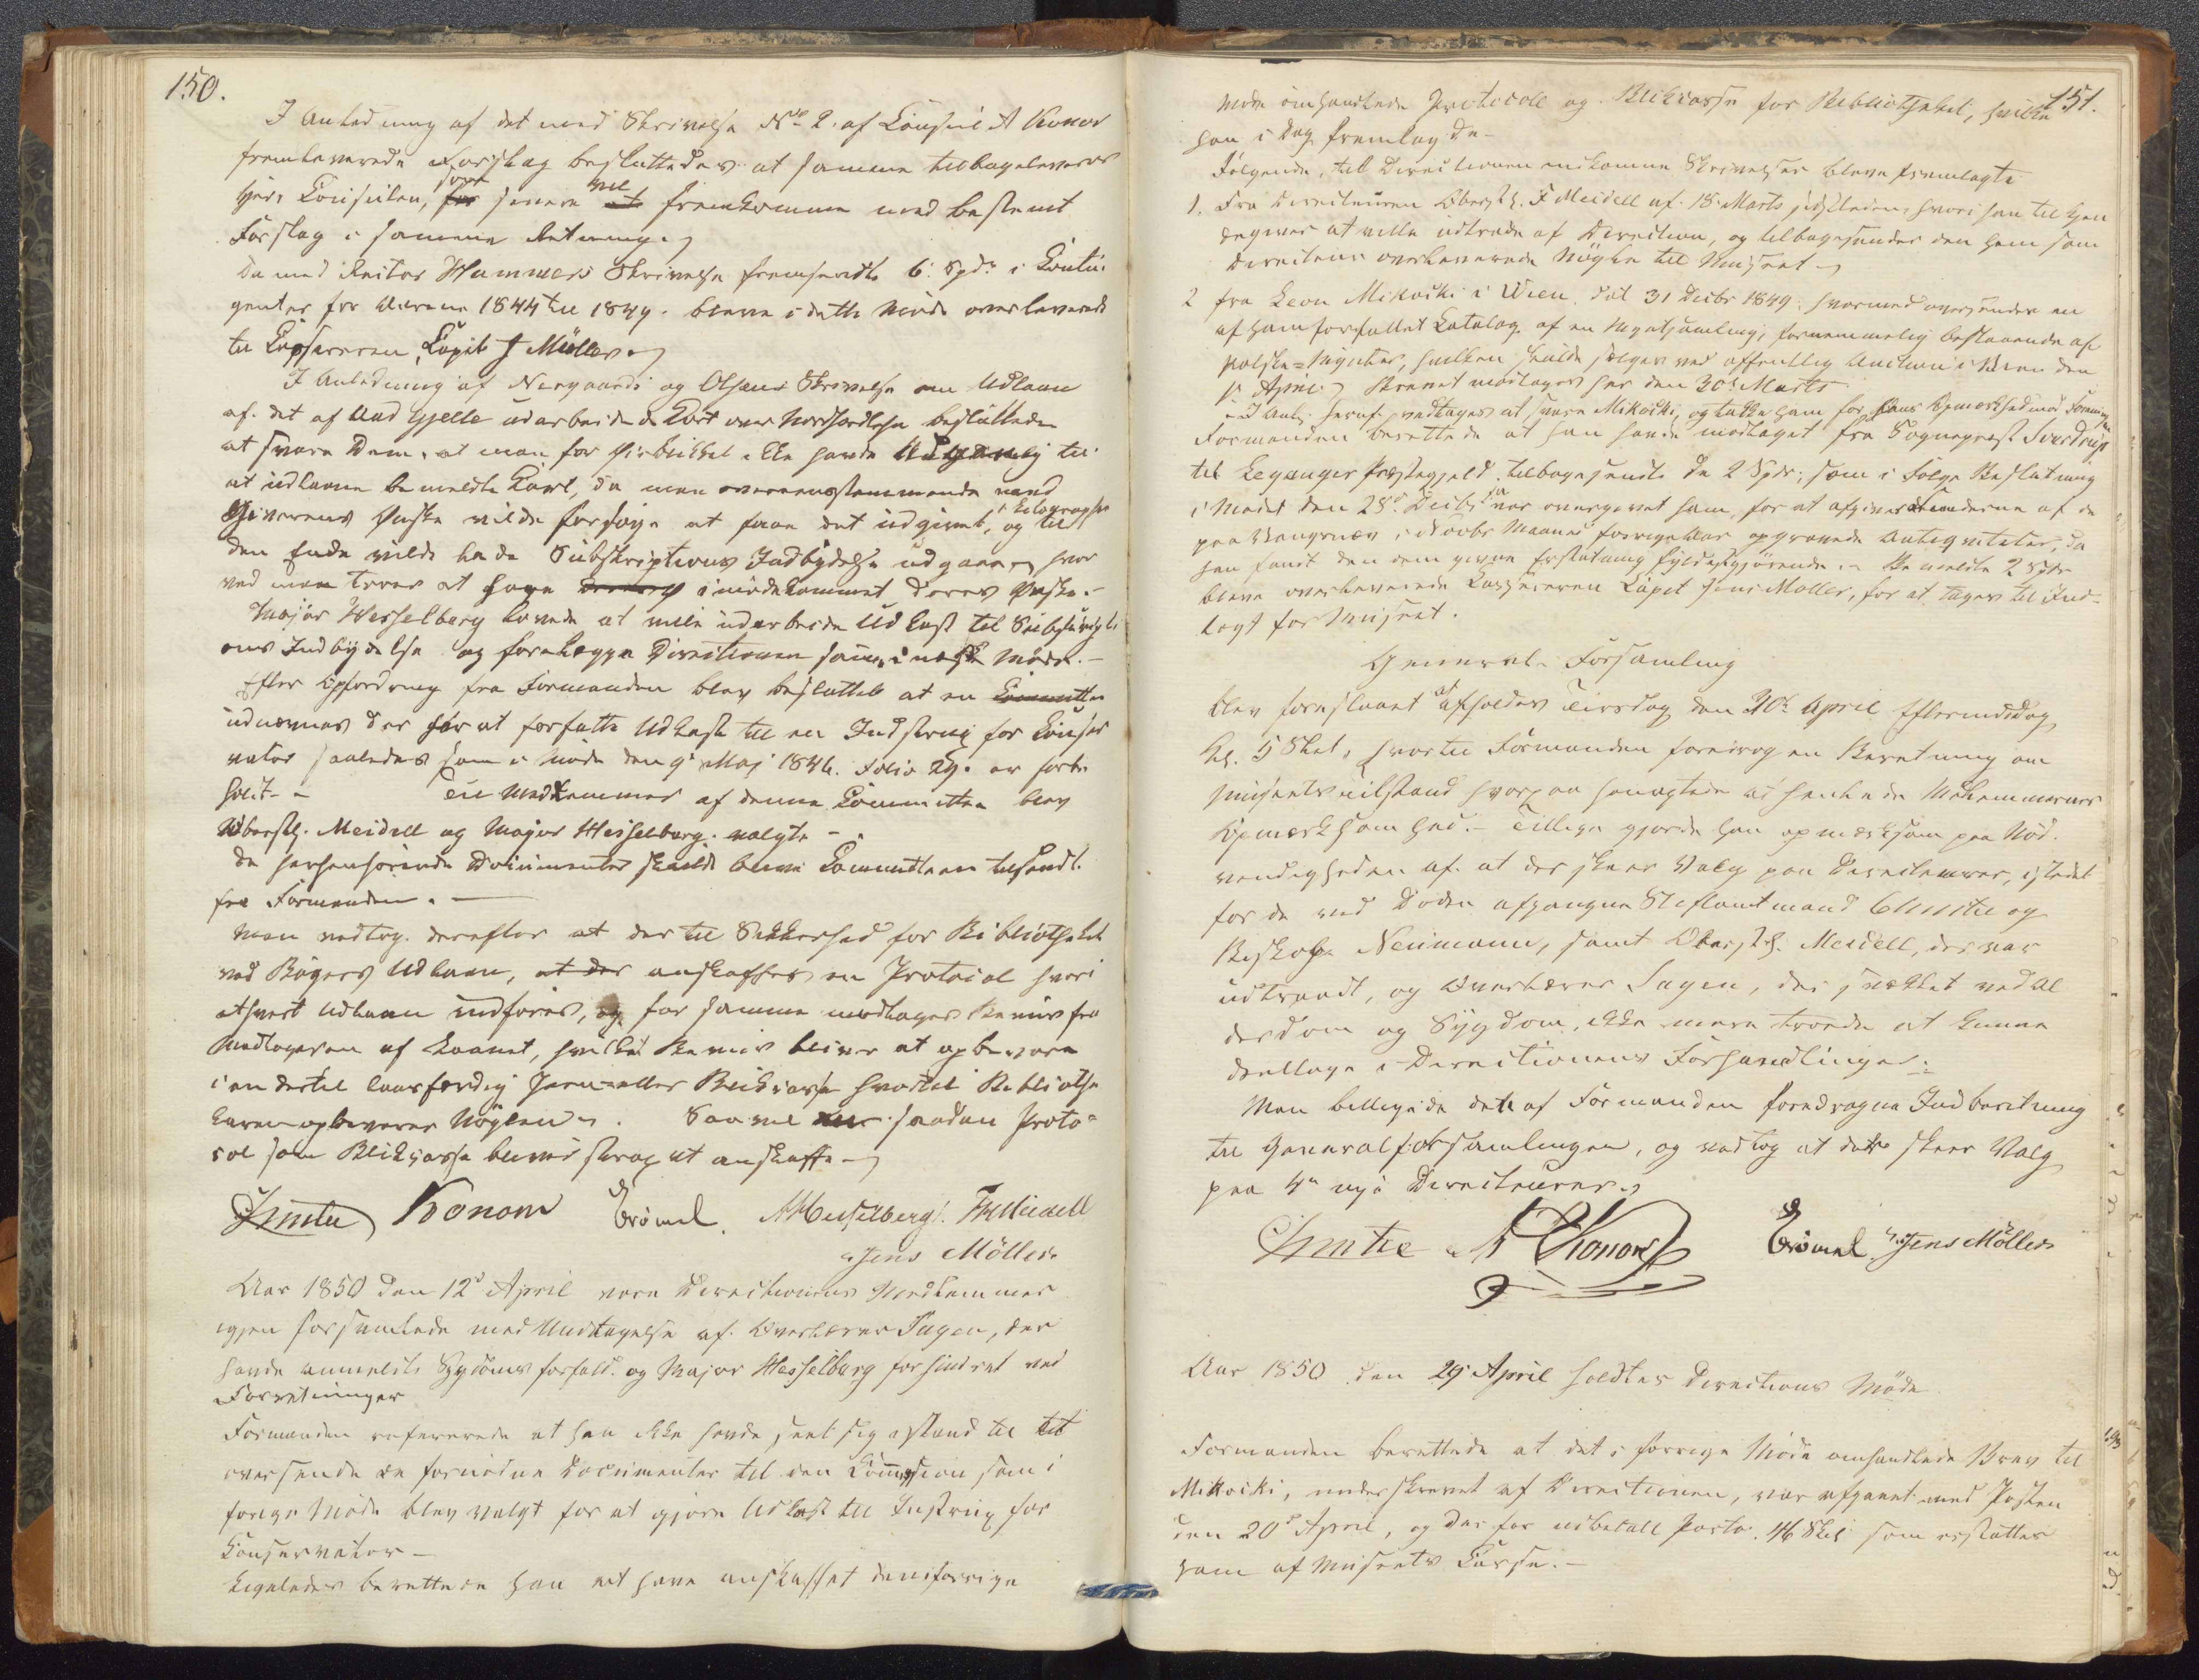 150.
I Anledning af det med Skrivelse No 2. af Consul A Konow
fremleverede Forslag besluttedes at samme tilbageleveres
Herr Consulen, som senere vil fremkomme med bestemt
Forslag i samme Retning.
Da med Rector Hammers Skrivelse fremsendte 6 Spdr i Contin-
genter for Aarene 1844 til 1849. bleve i dette Møde overleverede
til Casseren, Capit J Müller.
I Anledning af Nergaards og Olsens Skrivelse om Udlaan
af det af Aad Gjelle udarbeidede Kort over Nordhordlehn besluttedes
at svare Dem, at man for Øieblikket ikke havde til
at udlaane bemeldte Kart, da man overeensstemmende med
Giverens Ønske vilde forsøge at faae det udgivet, og til
den Ende vilde lade Subskriptions Indbydelse udgaae, hvor
ved man troer at have imødekommet deres Ønske.-
Major Hesselberg lovede at ville udarbeide Udkast til Subscripti
ons Indbydelse og forelægge Directionen samme i næste Møde.-
Efter Opfordring fra Formanden blev besluttet at en Committee
udnævnes der for at forfatte Udkast til en Instrux for Conser
vator saaledes som i Møde den 9 Maj 1846. Folio 29. er forbe
holdt.- Til Medlemmer af denne Committee blev
Oberstl. Meidell og Major Hesselberg valgte -
De herhenhørende Documenter skulde blive Committeen tilsendt
fra Formanden. -
Man vedtog derefter at der til Sikkerhed for Bibliotheket
ved Bøgers Udlaan, at der anskaffes en Protocol hvori
ethvert Udlaan indføres, og for samme modtages Beviis fra
Modtageren af Laanet, hvilket Beviis bliver at opbevare
i en dertil laasfærdig Jern- eller Blikcasse hvortil Bibliothe
karen opbevarer Nøglen. Saavel saadan Proto-
col som Blikcasse bliver strax at anskaffe -
Christie Konow Grimel. A Hesselberg. FMeidell
Jens Möller
Aar 1850 den 12 April vare Directionens Medlemmer
igjen forsamlede med Undtagelse af Overlærer Sagen, der
havde anmeldt Sygdoms forfald og Major Hesselberg forhindret ved
Forretninger
Formanden refererede at han ikke havde seet sig istand til
oversende de fornødne Documenter til den Commission som i
forrige Møde blev valgt for at gjøre Udkast til Instrux for
Conservator -
Ligeledes berettede han at have anskaffet den i forrige
151.
Møde omhandlede Protocoll og Blikcasse for Bibliotheket, hvilke
han i Dag fremlagde-
Følgende, til Directionen indkomne Skrivelser bleve fremlagte
1. Fra Directeuren Oberstl. F Meidell af 18 Marts sidstleden, hvori han til Kjen
degiver at ville udtræde af Direction, og tilbagesender den ham som
Directeur overleverede Nøgle til Museet -
2 fra Leon Mikocki i Wien, dat 31 Decbr 1849. hvormed oversendes en
af ham forfattet Catalog af en Myntsamling, fornemmelig bestaaende af
polske Mynter, hvilken skulde sælges ved offentlig Auction i Wien den
April. Brevet modtages her den 30 Marts
I Anl. heraf vedtages at svare Mikocki, og takke ham for hans Opmærksomhed mod
Formanden berettede at han havde modtaget fra Sognepræst Sverdrup
til Leganger Præstegjeld tilbagesendt de 2 Spdr; som i Følge Beslutning
i Mødet den 28 Decbr var overgivet ham, for at afgives Finderne af de
paa Stangenæs i Novbr Maaned forrige Aar opgravede Antiqviteter, da
han fandt den dem givne Erstatning fyldestgjørende.- Bemeldte 2 Spdr
bleve overleverede Kassereren Capit Jens Møller, for at tages til Ind-
tægt for Museet.
General-Forsamling
blev foreslaaet at afholdes Tirsdag den 30 April Eftermiddag
Kl. 5 Slet, hvortil Formanden foredrog en Beretning om
Museets tilstand hvorpaa han agtede at henlede Medlemmernes
Opmærksomhed.- Tillige gjorde han opmærksom paa Nød-
vendigheden af at der skeer Valg paa Directeurer, istedet
for de ved Døden afgangne Stiftamtmand Christie og
Biskop Neumann, samt Oberstl. Meidell, der var
udtraadt, og Overlærer Sagen, der svækket ved Al
derdom og Sygdom, ikke mere troede at kunne
deeltage i Directionens Forhandlinger.
Man billigede det af Formanden foredragne Indberetning
til Generalforsamlingen, og vedtog at der skeer Valg
paa 4 nye Directeurer.
Christie A Konow Grimel Jens Möller
Aar 1850 den 29 April holdtes Directions Møde
Formanden berettede at det i forrige Møde omhandlede Brev til
Mikocki, underskrevet af Directionen, var afgaaet med Posten
den 20 April, og derfor udbetalt Porto 46 Skil som erstattes
ham af Museets Casse.-